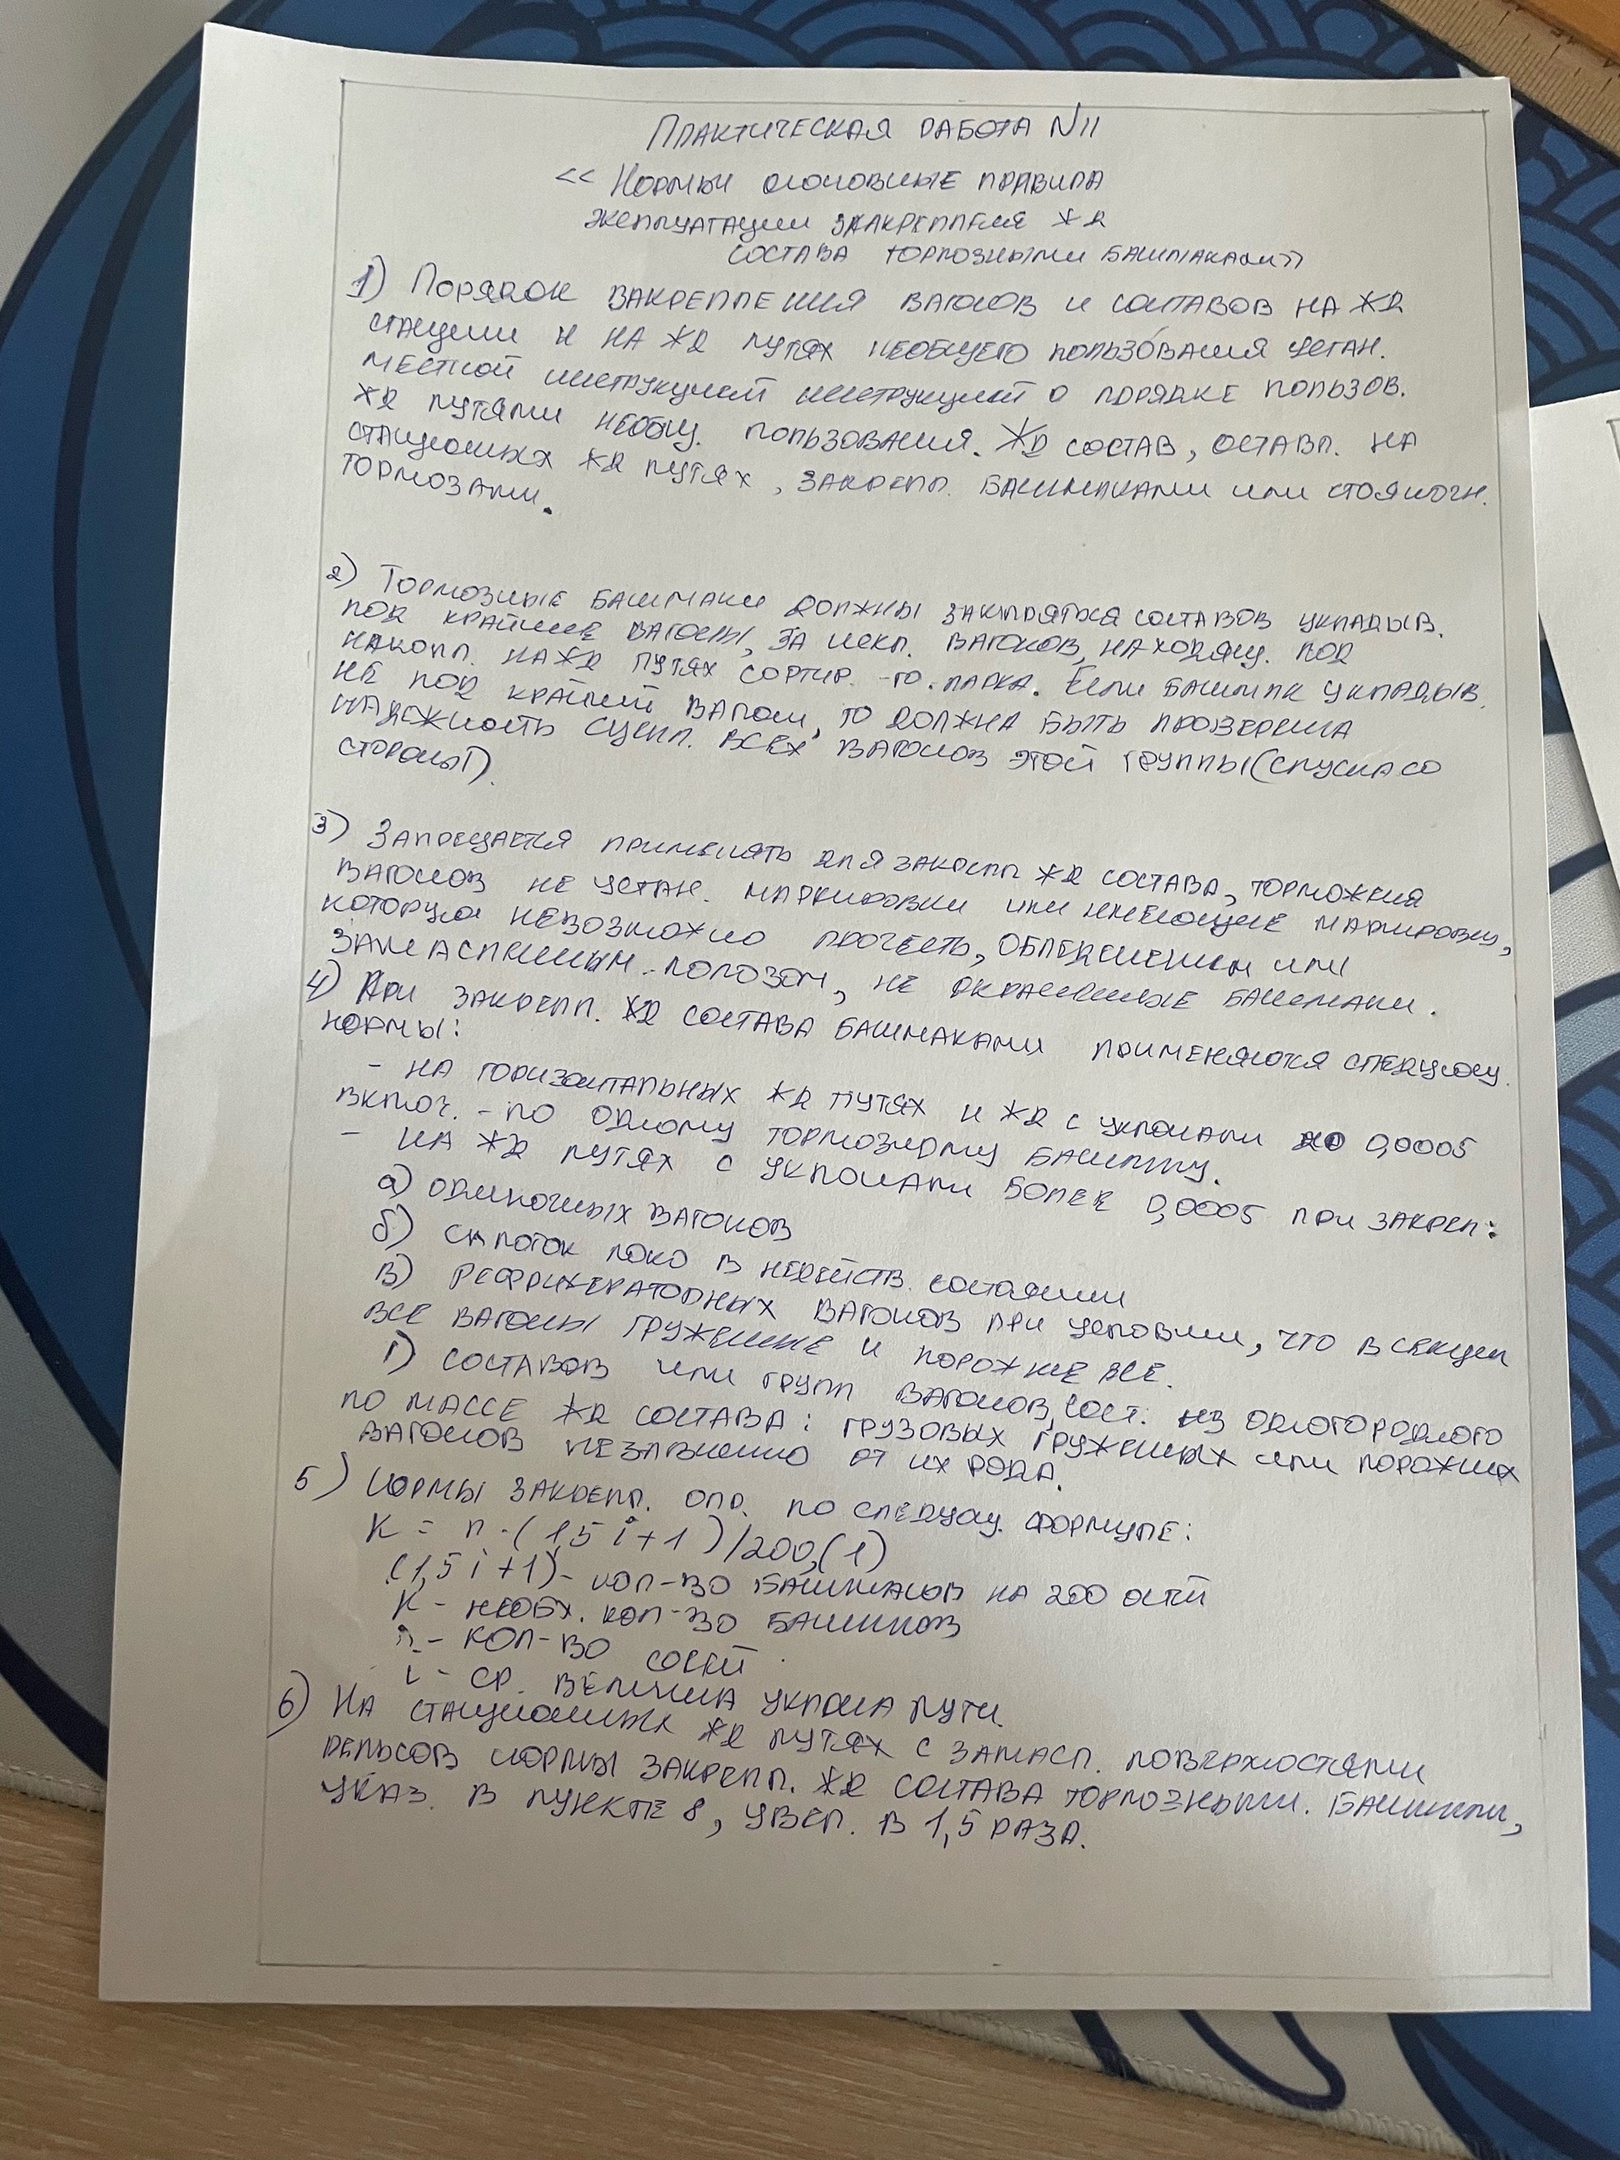 Практическая работа N11
<< Нормы и основные правила
эксплуатации закрепления ЖД
состава тормозными башмаками>>
1) Порядок закрепления вагонов и составов на ЖД
станции и на ЖД путях необщего пользования устан.
местной инструкцией инструкцией о порядке пользов.
ЖД путями необщ. пользования. ЖД состав, оставл. на
станционных ЖД путях, закрепл. башмаками или стояночн.
тормозами.
2) Тормозные башмаки должны составов укладыв.
под крайние вагоны, за искл. вагонов, находящ. под
накопл. на ЖД путях сортир. -го. парка. Если башмак укладыв.
не под крайний вагон, то должна быть проверена
надежность сцепл. всех вагонов этой группы (спуска со
стороны).
3) Запрещается применять для закрепл ЖД состава, торможения
вагонов не устан. маркировки или имеющие маркировку,
которую невозможно прочесть, обледененным или
замасленным. полозом, не окрашенные башмаки.
4) При закрепл. ЖД состава башмаками применяются следующ.
нормы:
- на горизонтальных ЖД путях и ЖД с уклонами до 0,0005
включ. - по одному тормозному башмаку.
- на ЖД путях с уклонами более 0,0005 при закреп:
а) одиночных вагонов
б) локо в недейств. состоянии
в) рефрижераторных вагонов при условии, что в секции
все вагоны груженые и порожние все.
г) составов или групп вагонов, сост. из однородного
по массе ЖД состава: грузовых груженых или порожних
вагонов независимо от их рода.
5) Нормы закрепл. опр. по следующ. формуле:
K = n · (1,5 i + 1)/200,(1)
(1,5 i + 1) - кол-во башмаков на 200 осей
K - необх. кол-во башмаков
n - кол-во осей
i - ср. величина уклона пути.
6) На станционных ЖД путях с замасл. поверхностями
рельсов нормы закрепл. ЖД состава тормозными. башмаками,
указ. в пункте 8, увел. в 1,5 раза.